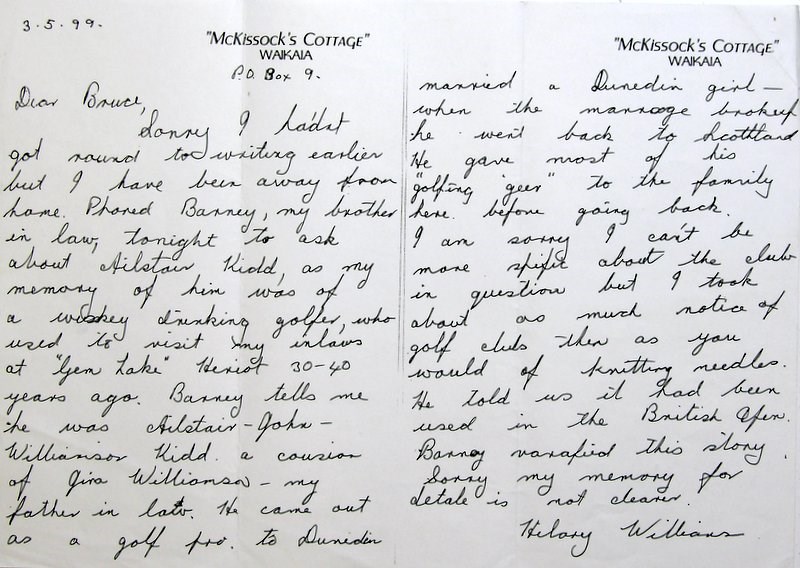 3.5.99.
"McKissock's Cottage"
WAIKAIA
P.O. Box 9.
Dear Bruce,
Sorry I hadn't
got round to writing earlier
but I have been away from
home. Phoned Barney, my brother
in law, tonight to ask
about Ailstair Kidd, as my
memory of him was of
a wiskey drinking golfer, who
used to visit my inlaws
at "Gem Lake" Heriot 30-40
years ago. Barney tells me
he was Ailstair-John-
Williamson Kidd. a cousion
of Jim Williamson - my
father in law. He came out
as a golf pro. to Dunedin
"McKissock's Cottage"
WAIKAIA
married a Dunedin girl -
when the marrage brokeup
he went back to Scottland
He gave most of his
"golfing geer" to the family
here. before going back.
I am sorry I can't be
more spific about the club
in question but I took
about as much notice of
golf clubs then as you
would of knitting needles.
He told us it had been
used in the British Open.
Barney varafied this story.
Sorry my memory for
detale is not clearer.
Hilary